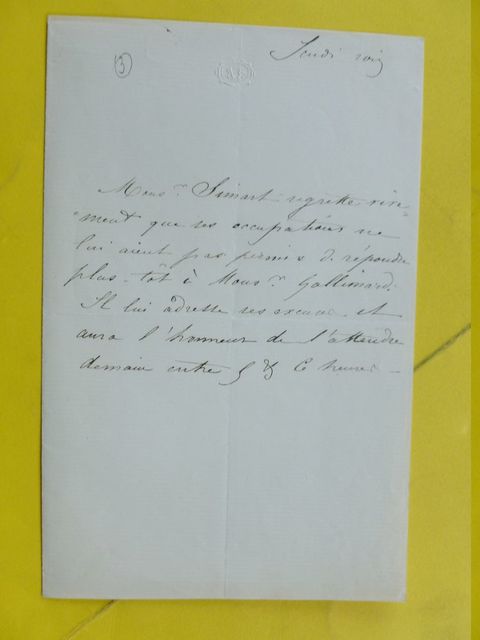 3
Jeudi soir
Mons.r Simart regrette vive=
=ment que ses occupations ne
lui aient pas permis de répondre
plus-tôt à Mons.r Gallimard.
Il lui adresse ses excuses et
aura l'honneur de l'attendre
demain entre 5 & 6 heures